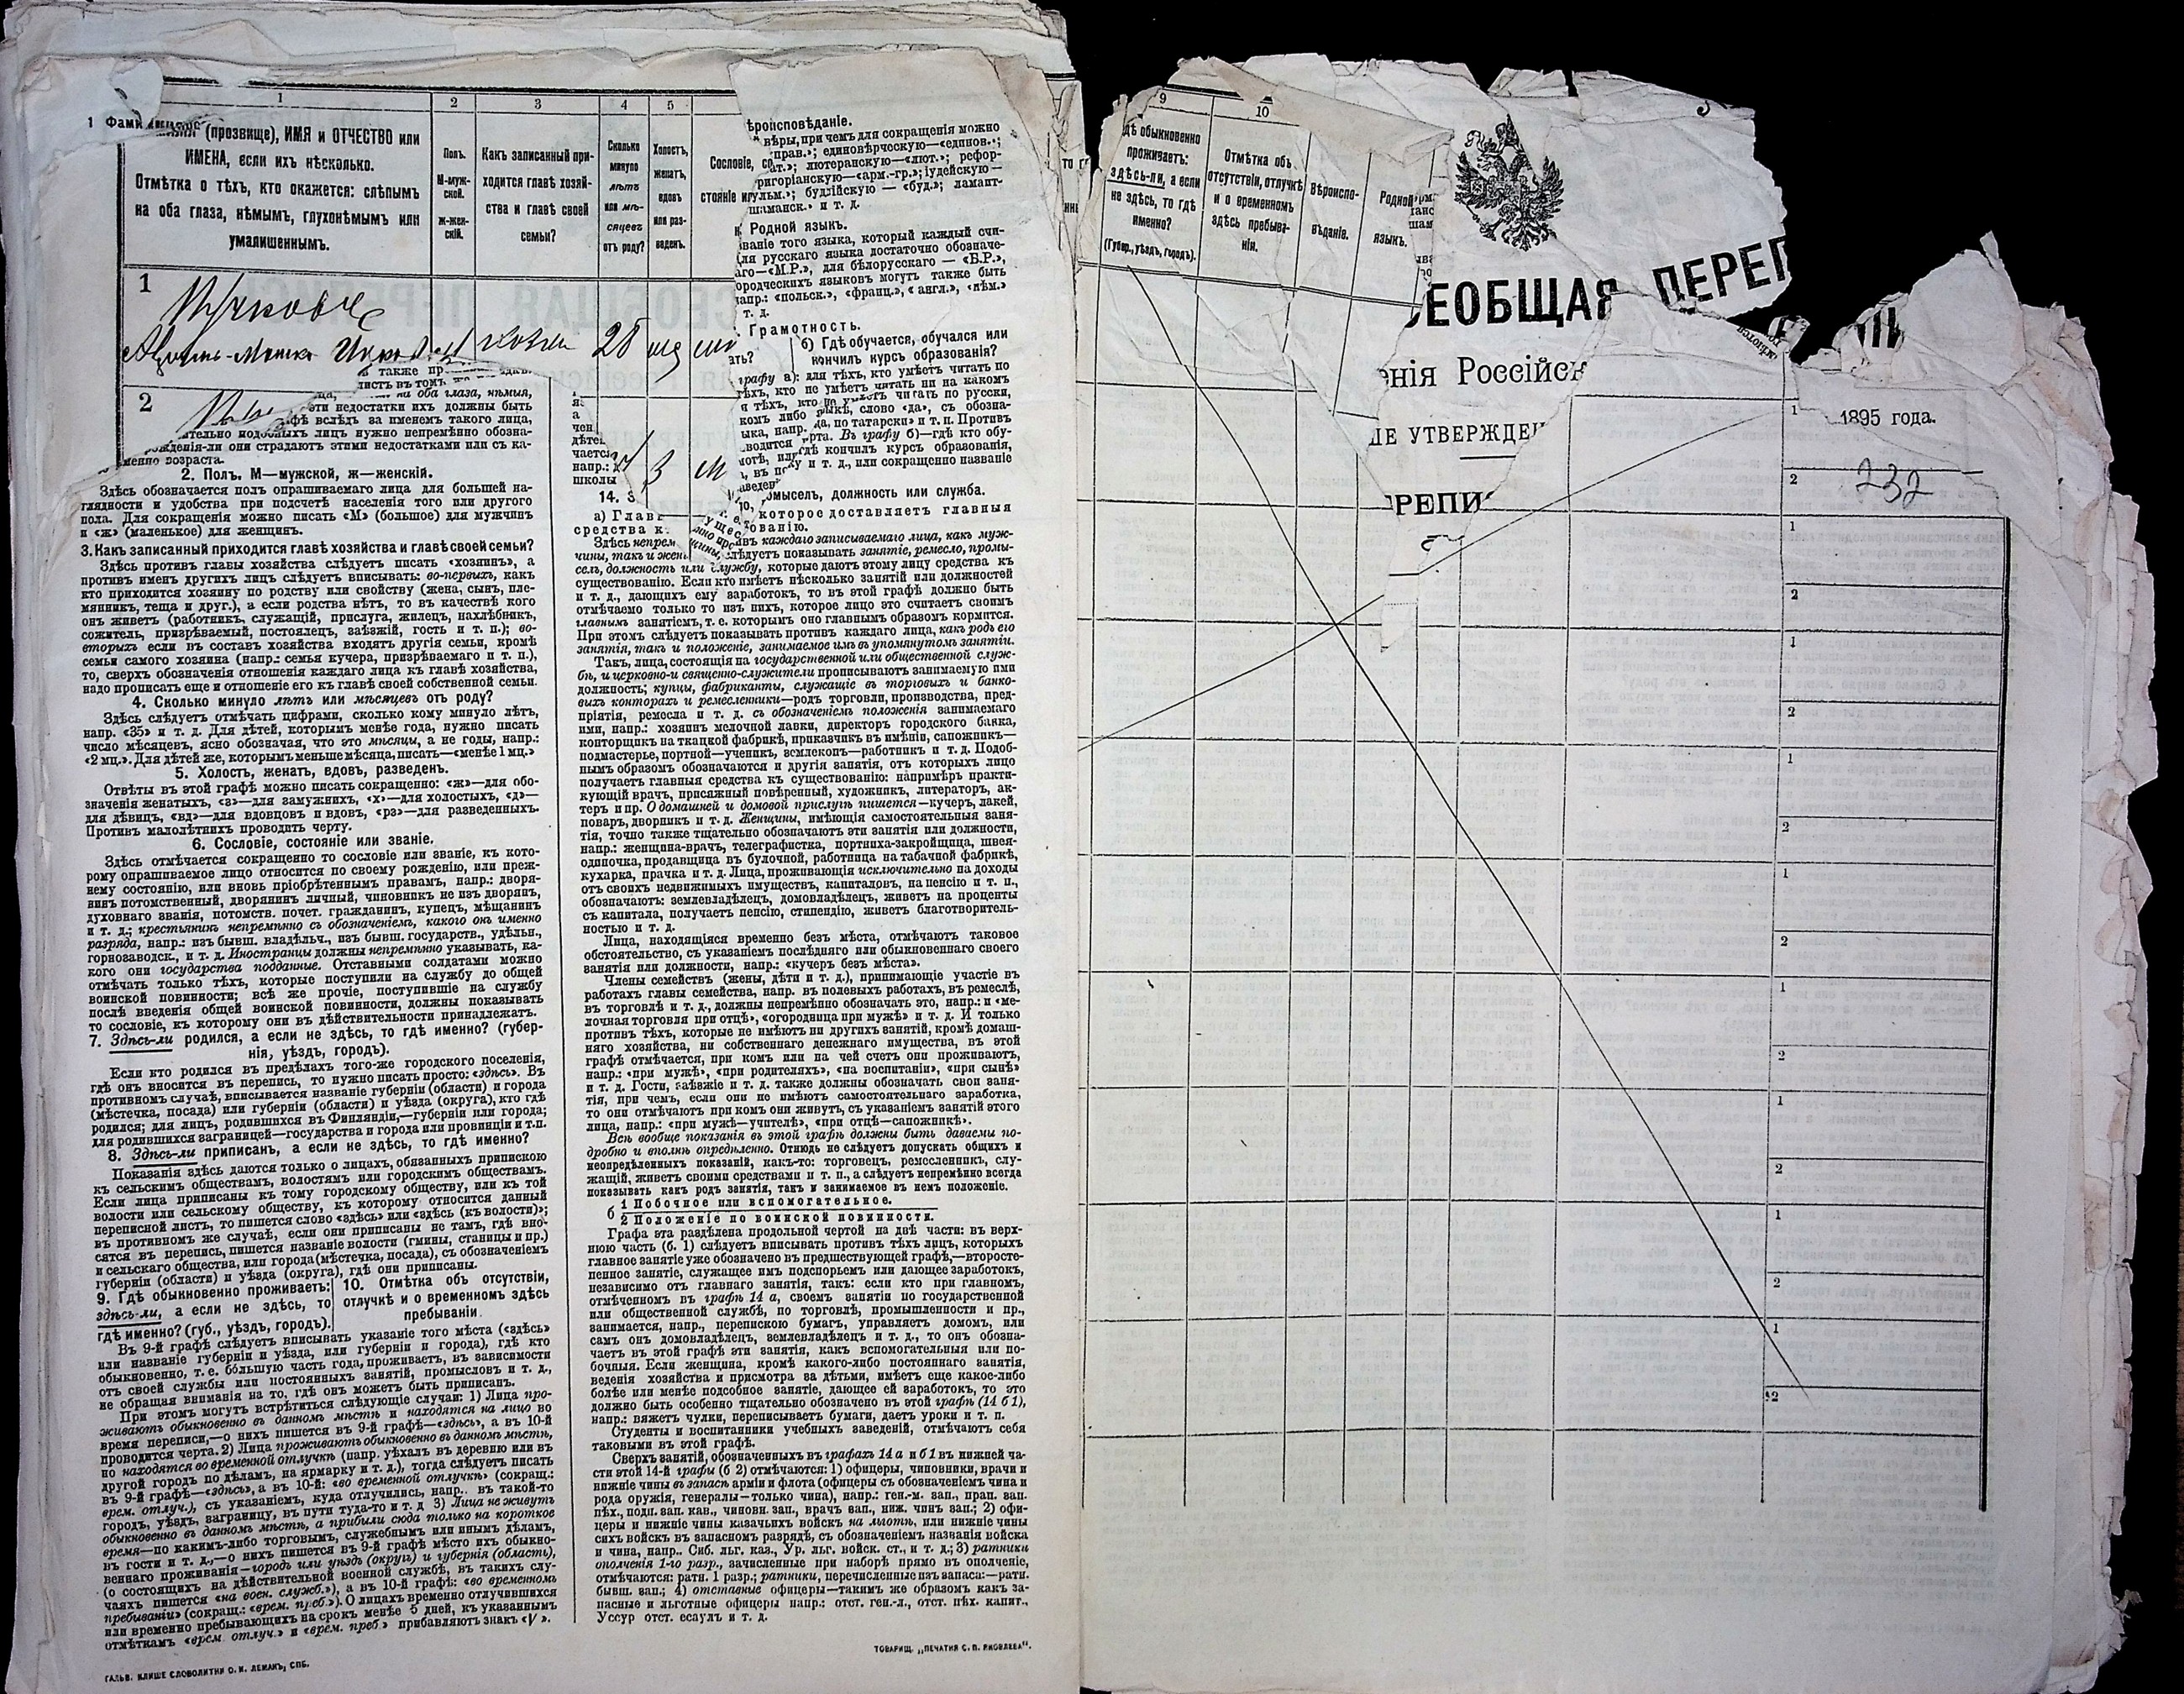 1
2
3
4
5
1 Фами
(прозвище), ИМЯ и ОТЧЕСТВО или
ИМЕНА, если ихъ нѣсколько.
Отмѣтка о тѣхъ, кто окажется: слѣпымъ
на оба глаза, нѣмымъ, глухонѣмымъ или
умалишеннымъ.
Полъ.
М-муж-
ской.
ж-жен-
скій.
Какъ записанный при-
ходится главѣ хозяй-
ства и главѣ своей
семьи?
Сколько
минуло
лѣтъ
или мѣ-
сяцевъ
отъ роду?
Холостъ,
женатъ,
вдовъ
или раз-
веденъ.
Сословіе, со
стояніе и
1
28
2
ти недостатки ихъ должны быть
фѣ вслѣдъ за именемъ такого лица,
рожденія-ли они страдаютъ этими недостатками или съ ка-
менно возраста.
2. Полъ. М—мужской, ж—женскій.
Здѣсь обозначается полъ опрашиваемаго лица для большей на-
глядности и удобства при подсчетѣ населенія того или другого
пола. Для сокращенія можно писать «М» (большое) для мужчинъ
и «ж» (маленькое) для женщинъ.
3. Какъ записанный приходится главѣ хозяйства и главѣ своей семьи?
Здѣсь противъ главы хозяйства слѣдуетъ писать «хозяинъ», а
противъ именъ другихъ лицъ слѣдуетъ вписывать: во-первыхъ, какъ
кто приходится хозяину по родству или свойству (жена, сынъ, пле-
мянникъ, теща и друг.), а если родства нѣтъ, то въ качествѣ кого
онъ живетъ (работникъ, служащій, прислуга, жилецъ, нахлѣбникъ,
сожитель, призрѣваемый, постоялецъ, заѣзжій, гость и т. п.); во-
вторыхъ если въ составъ хозяйства входятъ другія семьи, кромѣ
семьи самого хозяина (напр.: семья кучера, призрѣваемаго и т. п.),
то, сверхъ обозначенія отношенія каждаго лица къ главѣ хозяйства,
надо прописать еще и отношеніе его къ главѣ своей собственной семьи.
4. Сколько минуло лѣтъ или мѣсяцевъ отъ роду?
Здѣсь слѣдуетъ отмѣчать цифрами, сколько кому минуло лѣтъ,
напр. «35» и т. д. Для дѣтей, которымъ менѣе года, нужно писать
число мѣсяцевъ, ясно обозначая, что это мѣсяцы, а не годы, напр.:
«2 мц.». Для дѣтей же, которымъ меньше мѣсяца, писать—«менѣе 1 мц.»
5. Холостъ, женатъ, вдовъ, разведенъ.
Отвѣты въ этой графѣ можно писать сокращенно: «ж»—для обо-
значенія женатыхъ, «з»—для замужнихъ, «х»—для холостыхъ, «д»—
для дѣвицъ, «вд»—для вдовцовъ и вдовъ, «рз»—для разведенныхъ.
Противъ малолѣтнихъ проводить черту.
6. Сословіе, состояніе или званіе.
Здѣсь отмѣчается сокращенно то сословіе или званіе, къ кото-
рому опрашиваемое лицо относится по своему рожденію, или преж-
нему состоянію, или вновь пріобрѣтеннымъ правамъ, напр.: дворя-
нинъ потомственный, дворянинъ личный, чиновникъ не изъ дворянъ,
духовнаго званія, потомств. почет. гражданинъ, купецъ, мѣщанинъ
и т. д.; крестьянинъ непремѣнно съ обозначеніемъ, какого онъ именно
разряда, напр.: изъ бывш. владѣльч., изъ бывш. государств., удѣльн.,
горнозаводск., и т. д. Иностранцы должны непремѣнно указывать, ка-
кого они государства подданные. Отставными солдатами можно
отмѣчать только тѣхъ, которые поступили на службу до общей
воинской повинности; всѣ же прочіе, поступившіе на службу
послѣ введенія общей воинской повинности, должны показывать
то сословіе, къ которому они въ дѣйствительности принадлежатъ.
7. Здѣсь-ли родился, а если не здѣсь, то гдѣ именно? (губер-
нія, уѣздъ, городъ).
Если кто родился въ предѣлахъ того-же городского поселенія,
гдѣ онъ вносится въ перепись, то нужно писать просто: «здѣсь». Въ
противномъ случаѣ, вписывается названіе губерніи (области) и города
(мѣстечка, посада) или губерніи (области) и уѣзда (округа), кто гдѣ
родился; для лицъ, родившихся въ Финляндіи,—губерніи или города;
для родившихся заграницей—государства и города или провинціи и т.п.
8. Здѣсь-ли приписанъ, а если не здѣсь, то гдѣ именно?
Показанія здѣсь даются только о лицахъ, обязанныхъ припискою
къ сельскимъ обществамъ, волостямъ или городскимъ обществамъ.
Если лица приписаны къ тому городскому обществу, или къ той
волости или сельскому обществу, къ которому относится данный
переписной листъ, то пишется слово «здѣсь» или «здѣсь (къ волости)»;
въ противномъ же случаѣ, если они приписаны не тамъ, гдѣ вно-
сятся въ перепись, пишется названіе волости (гмины, станицы и пр.)
и сельскаго общества, или города (мѣстечка, посада), съ обозначеніемъ
губерніи (области) и уѣзда (округа), гдѣ они приписаны.
9. Гдѣ обыкновенно проживаетъ:
здѣсь-ли, а если не здѣсь, то
гдѣ именно? (губ., уѣздъ, городъ).
10. Отмѣтка объ отсутствіи,
отлучкѣ и о временномъ здѣсь
пребываніи.
Въ 9-й графѣ слѣдуетъ вписывать указаніе того мѣста («здѣсь»
или названіе губерніи и уѣзда, или губерніи и города), гдѣ кто
обыкновенно, т. е. бо́льшую часть года, проживаетъ, въ зависимости
отъ своей службы или постоянныхъ занятій, промысловъ и т. д.,
не обращая вниманія на то, гдѣ онъ можетъ быть приписанъ.
При этомъ могутъ встрѣтиться слѣдующіе случаи: 1) Лица про-
живаютъ обыкновенно въ данномъ мѣстѣ и находятся на лицо во
время переписи,—о нихъ пишется въ 9-й графѣ—«здѣсь», а въ 10-й
проводится черта. 2) Лица проживаютъ обыкновенно въ данномъ мѣстѣ,
но находятся во временной отлучкѣ (напр. уѣхалъ въ деревню или въ
другой городъ по дѣламъ, на ярмарку и т. д.), тогда слѣдуетъ писать
въ 9-й графѣ—«здѣсь», а въ 10-й: «во временной отлучкѣ» (сокращ.:
врем. отлуч.), съ указаніемъ, куда отлучились, напр.. въ такой-то
городъ, уѣздъ, заграницу, въ пути туда-то и т. д 3) Лица не живутъ
обыкновенно въ данномъ мѣстѣ, а прибыли сюда только на короткое
время—по какимъ-либо торговымъ, служебнымъ или инымъ дѣламъ,
въ гости и т. д.,—о нихъ пишется въ 9-й графѣ мѣсто ихъ обыкно-
веннаго проживанія—городъ или уѣздъ (округъ) и губернія (область),
(о состоящихъ на дѣйствительной военной службѣ, въ такихъ слу-
чаяхъ пишется «на воен. служб.»), а въ 10-й графѣ: «во временномъ
пребываніи» (сокращ.: «врем. преб.»). О лицахъ временно отлучившихся
или временно пребывающихъ на срокъ менѣе 5 дней, къ указаннымъ
отмѣткамъ «врем. отлуч.» и «врем. преб.» прибавляютъ знакъ «V».
ГАЛЬВ. КЛИШЕ СЛОВОЛИТНИ О. И. ЛЕМАНЪ, СПБ.
ѣроисповѣданіе.
вѣры, при чемъ для сокращенія можно
прав.»; единовѣрческую—«единов.»;
ат.»; лютеранскую—«лют.»; рефор-
ригоріанскую—«арм.-гр.»; іудейскую—
ульм.»; буддійскую—«буд.»; ламаит-
шаманск.» и т. д.
Родной языкъ.
званіе того языка, который каждый счи-
ля русскаго языка достаточно обозначе-
аго—«М.Р.», для бѣлорусскаго — «Б.Р.»,
ородческихъ языковъ могутъ также быть
напр.: «польск.», «франц.», «англ.», «нѣм.»
т. д.
Грамотность.
ать?
б) Гдѣ обучается, обучался или
кончилъ курсъ образованія?
графу а): для тѣхъ, кто умѣетъ читать по
ѣхъ, кто не умѣетъ читать ни на какомъ
комъ либо языкѣ, слово «да», съ обозна-
ыка, напр. да, по татарски» и т. п. Противъ
водится черта. Въ графу б)—гдѣ кто обу-
гдѣ кончилъ курсъ образованія,
и т. д., или сокращенно названіе
14. З
омыселъ, должность или служба.
а) Глав
которое доставляетъ главныя
средства к
ованію.
Здѣсь непрем
ивъ каждаго записываемаго лица, какъ муж-
чины, такъ и жен
слѣдуетъ показывать занятіе, ремесло, промы-
селъ, должность или службу, которые даютъ этому лицу средства къ
существованію. Если кто имѣетъ нѣсколько занятій или должностей
и т. д., дающихъ ему заработокъ, то въ этой графѣ должно быть
отмѣчаемо только то изъ нихъ, которое лицо это считаетъ своимъ
главнымъ занятіемъ, т. е. которымъ оно главнымъ образомъ кормится.
При этомъ слѣдуетъ показывать противъ каждаго лица, какъ родъ его
занятія, такъ и положеніе, занимаемое имъ въ упомянутомъ занятіи.
Такъ, лица, состоящія на государственной или общественной служ-
бѣ, и церковно-и священно-служители прописываютъ занимаемую ими
должность; купцы, фабриканты, служащіе въ торговыхъ и банко-
выхъ конторахъ и ремесленники—родъ торговли, производства, пред-
пріятія, ремесла и т. д. съ обозначеніемъ положенія занимаемаго
ими, напр.: хозяинъ мелочной лавки, директоръ городского банка,
конторщикъ на ткацкой фабрикѣ, приказчикъ въ имѣніи, сапожникъ—
подмастерье, портной—ученикъ, землекопъ—работникъ и т. д. Подоб-
нымъ образомъ обозначаются и другія занятія, отъ которыхъ лицо
получаетъ главныя средства къ существованію: напримѣръ практи-
кующій врачъ, присяжный повѣренный, художникъ, литераторъ, ак-
теръ и пр. О домашней и домовой прислугѣ пишется—кучеръ, лакей,
поваръ, дворникъ и т. д. Женщины, имѣющія самостоятельныя заня-
тія, точно также тщательно обозначаютъ эти занятія или должности,
напр.: женщина-врачъ, телеграфистка, портниха-закройщица, швея-
одиночка, продавщица въ булочной, работница на табачной фабрикѣ,
кухарка, прачка и т. д. Лица, проживающія исключительно на доходы
отъ своихъ недвижимыхъ имуществъ, капиталовъ, на пенсію и т. п.,
обозначаютъ: землевладѣлецъ, домовладѣлецъ, живетъ на проценты
съ капитала, получаетъ пенсію, стипендію, живетъ благотворитель-
ностью и т. д.
Лица, находящіяся временно безъ мѣста, отмѣчаютъ таковое
обстоятельство, съ указаніемъ послѣдняго или обыкновеннаго своего
занятія или должности, напр.: «кучеръ безъ мѣста».
Члены семействъ (жены, дѣти и т. д.), принимающіе участіе въ
работахъ главы семейства, напр. въ полевыхъ работахъ, въ ремеслѣ,
въ торговлѣ и т. д., должны непремѣнно обозначать это, напр.: и «ме-
лочная торговля при отцѣ», «огородница при мужѣ» и т. д. И только
противъ тѣхъ, которые не имѣютъ ни другихъ занятій, кромѣ домаш-
няго хозяйства, ни собственнаго денежнаго имущества, въ этой
графѣ отмѣчается, при комъ или на чей счетъ они проживаютъ,
напр.: «при мужѣ», «при родителяхъ», «на воспитаніи», «при сынѣ»
и т. д. Гости, заѣзжіе и т. д. также должны обозначать свои заня-
тія, при чемъ, если они не имѣютъ самостоятельнаго заработка,
то они отмѣчаютъ при комъ они живутъ, съ указаніемъ занятій этого
лица, напр.: «при мужѣ—учителѣ», «при отцѣ—сапожникѣ».
Всѣ вообще показанія въ этой графѣ должны быть даваемы по-
дробно и вполнѣ опредѣленно. Отнюдь не слѣдуетъ допускать общихъ и
неопредѣленныхъ показаній, какъ-то: торговецъ, ремесленникъ, слу-
жащій, живетъ своими средствами и т. п., а слѣдуетъ непремѣнно всегда
показывать какъ родъ занятія, такъ и занимаемое въ немъ положеніе.
б 1 Побочное или вспомогательное.
2 Положеніе по воинской повинности.
Графа эта раздѣлена продольной чертой на двѣ части: въ верх-
нюю часть (б. 1) слѣдуетъ вписывать противъ тѣхъ лицъ, которыхъ
главное занятіе уже обозначено въ предшествующей графѣ,—второсте-
пенное занятіе, служащее имъ подспорьемъ или дающее заработокъ,
независимо отъ главнаго занятія, такъ: если кто при главномъ,
отмѣченномъ въ графѣ 14 а, своемъ занятіи по государственной
или общественной службѣ, по торговлѣ, промышленности и пр.,
занимается, напр., перепискою бумагъ, управляетъ домомъ, или
самъ онъ домовладѣлецъ, землевладѣлецъ и т. д., то онъ обозна-
чаетъ въ этой графѣ эти занятія, какъ вспомогательныя или по-
бочныя. Если женщина, кромѣ какого-либо постояннаго занятія,
веденія хозяйства и присмотра за дѣтьми, имѣетъ еще какое-либо
болѣе или менѣе подсобное занятіе, дающее ей заработокъ, то это
должно быть особенно тщательно обозначено въ этой графѣ (14 б 1),
напр.: вяжетъ чулки, переписываетъ бумаги, даетъ уроки и т. п.
Студенты и воспитанники учебныхъ заведеній, отмѣчаютъ себя
таковыми въ этой графѣ.
Сверхъ занятій, обозначенныхъ въ графахъ 14 а и б 1 въ нижней ча-
сти этой 14-й графы (б 2) отмѣчаются: 1) офицеры, чиновники, врачи и
нижніе чины въ запасѣ арміи и флота (офицеры съ обозначеніемъ чина и
рода оружія, генералы—только чина), напр.: ген.-м. зап., прап. зап.
пѣх., подп. зап. кав., чиновн. зап., врачъ зап., ниж. чинъ зап.; 2) офи-
церы и нижніе чины казачьихъ войскъ на льготѣ, или нижніе чины
сихъ войскъ въ запасномъ разрядѣ, съ обозначеніемъ названія войска
и чина, напр.. Сиб. льг. каз., Ур. льг. войск. ст., и т. д.; 3) ратники
ополченія 1-го разр., зачисленные при наборѣ прямо въ ополченіе,
отмѣчаются: ратн. 1 разр.; ратники, перечисленные изъ запаса:—ратн.
бывш. зап.; 4) отставные офицеры—такимъ же образомъ какъ за-
пасные и льготные офицеры напр.: отст. ген.-л., отст. пѣх. капит.,
Уссур отст. есаулъ и т. д.
ТОВАРИЩ. „ПЕЧАТНЯ С. П. ЯКОВЛЕВА“.
9
10
дѣ обыкновенно
проживаетъ:
здѣсь-ли, а если
не здѣсь, то гдѣ
именно?
(Губер., уѣздъ, городъ).
Отмѣтка объ
отсутствіи, отлучкѣ
и о временномъ
здѣсь пребыва-
ніи.
Вѣроиспо-
вѣданіе.
Родной
языкъ.
ЕОБЩАЯ ПЕРЕП
енія Россійск
ШЕ УТВЕРЖДЕН
1895 года.
ЕРЕПИС
232
1
2
1
2
1
2
1
2
1
2
1
2
1
2
1
2
1
2